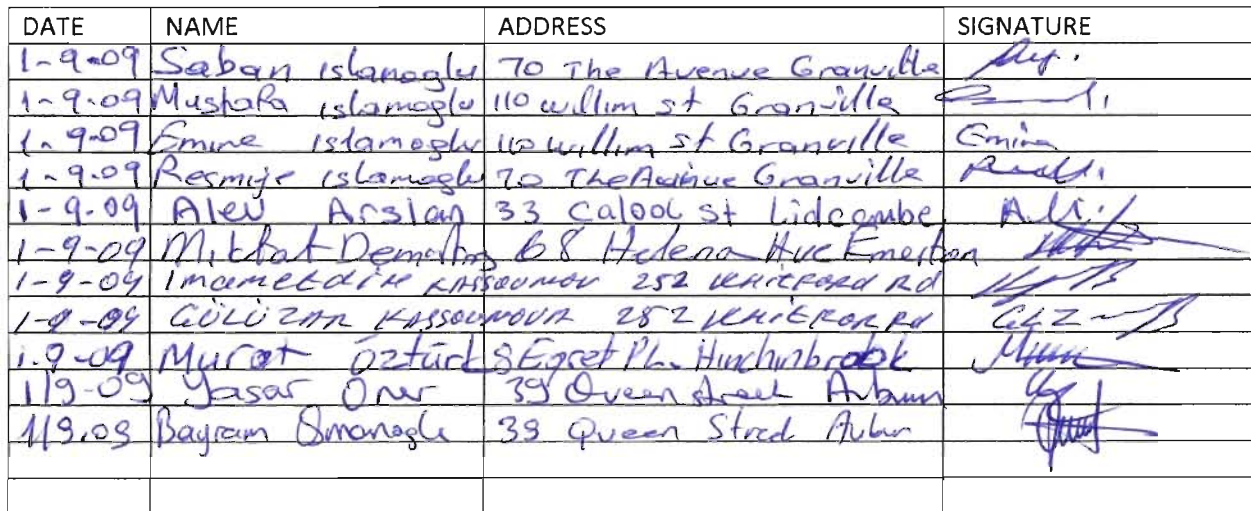 DATE NAME ADDRESS SIGNATURE
1-9-09 Saban islamoglu 70 The Avenue Granville
1-9-09 Mustafa islamoglu 110 willim st Granville
1-9-09 Emine islamoglu 110 willim st Granville Emine
1-9-09 Resmije islamoglu 70 The Avenue Granville
1-9-09 Alev Arslan 33 Calool st Lidcombe
1-9-09 Mithat 68 Helena Ave Emerton
1-9-09 KASSOUMOV 252 WHITFORD Rd
1-9-09 GÜLÜZAR KASSOUMOVA 252 Rd
1.9-09 Murat öztürk 8 Egret PL. Hinchinbrook
1/9-09 Yasar Oner 39 Queen street Auburn
1/9.09 Bayram Osmanoglu 39 Queen Stred Aubur